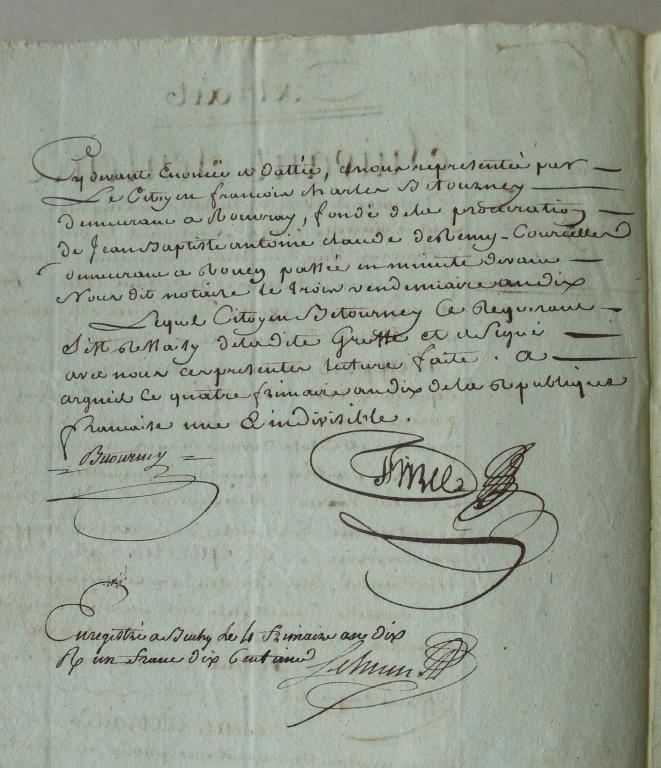 Cy devant Enoncée et dattée, et nous representée par
Le Citoyen francois Charles Betourney
demeurant a Rouvray, fondé de la procuration
de Jean Baptiste antoine claude de Remy - Courcelles
demeurant a Rouen passée en minute devant
Nous dit notaire le trois vendemiaire an dix
Lequel Citoyen Betourney Ce Requerant
S'est Ressaisy de la dite Grosse et a Signé
avec nous ces presentes lecture faite. A
argueil Ce quatre frimaire an dix de la Republique
francaise une & indivisible.
Betourney
Enregistré a Buchy le 4 frimaire an dix
R un franc dix Centimes